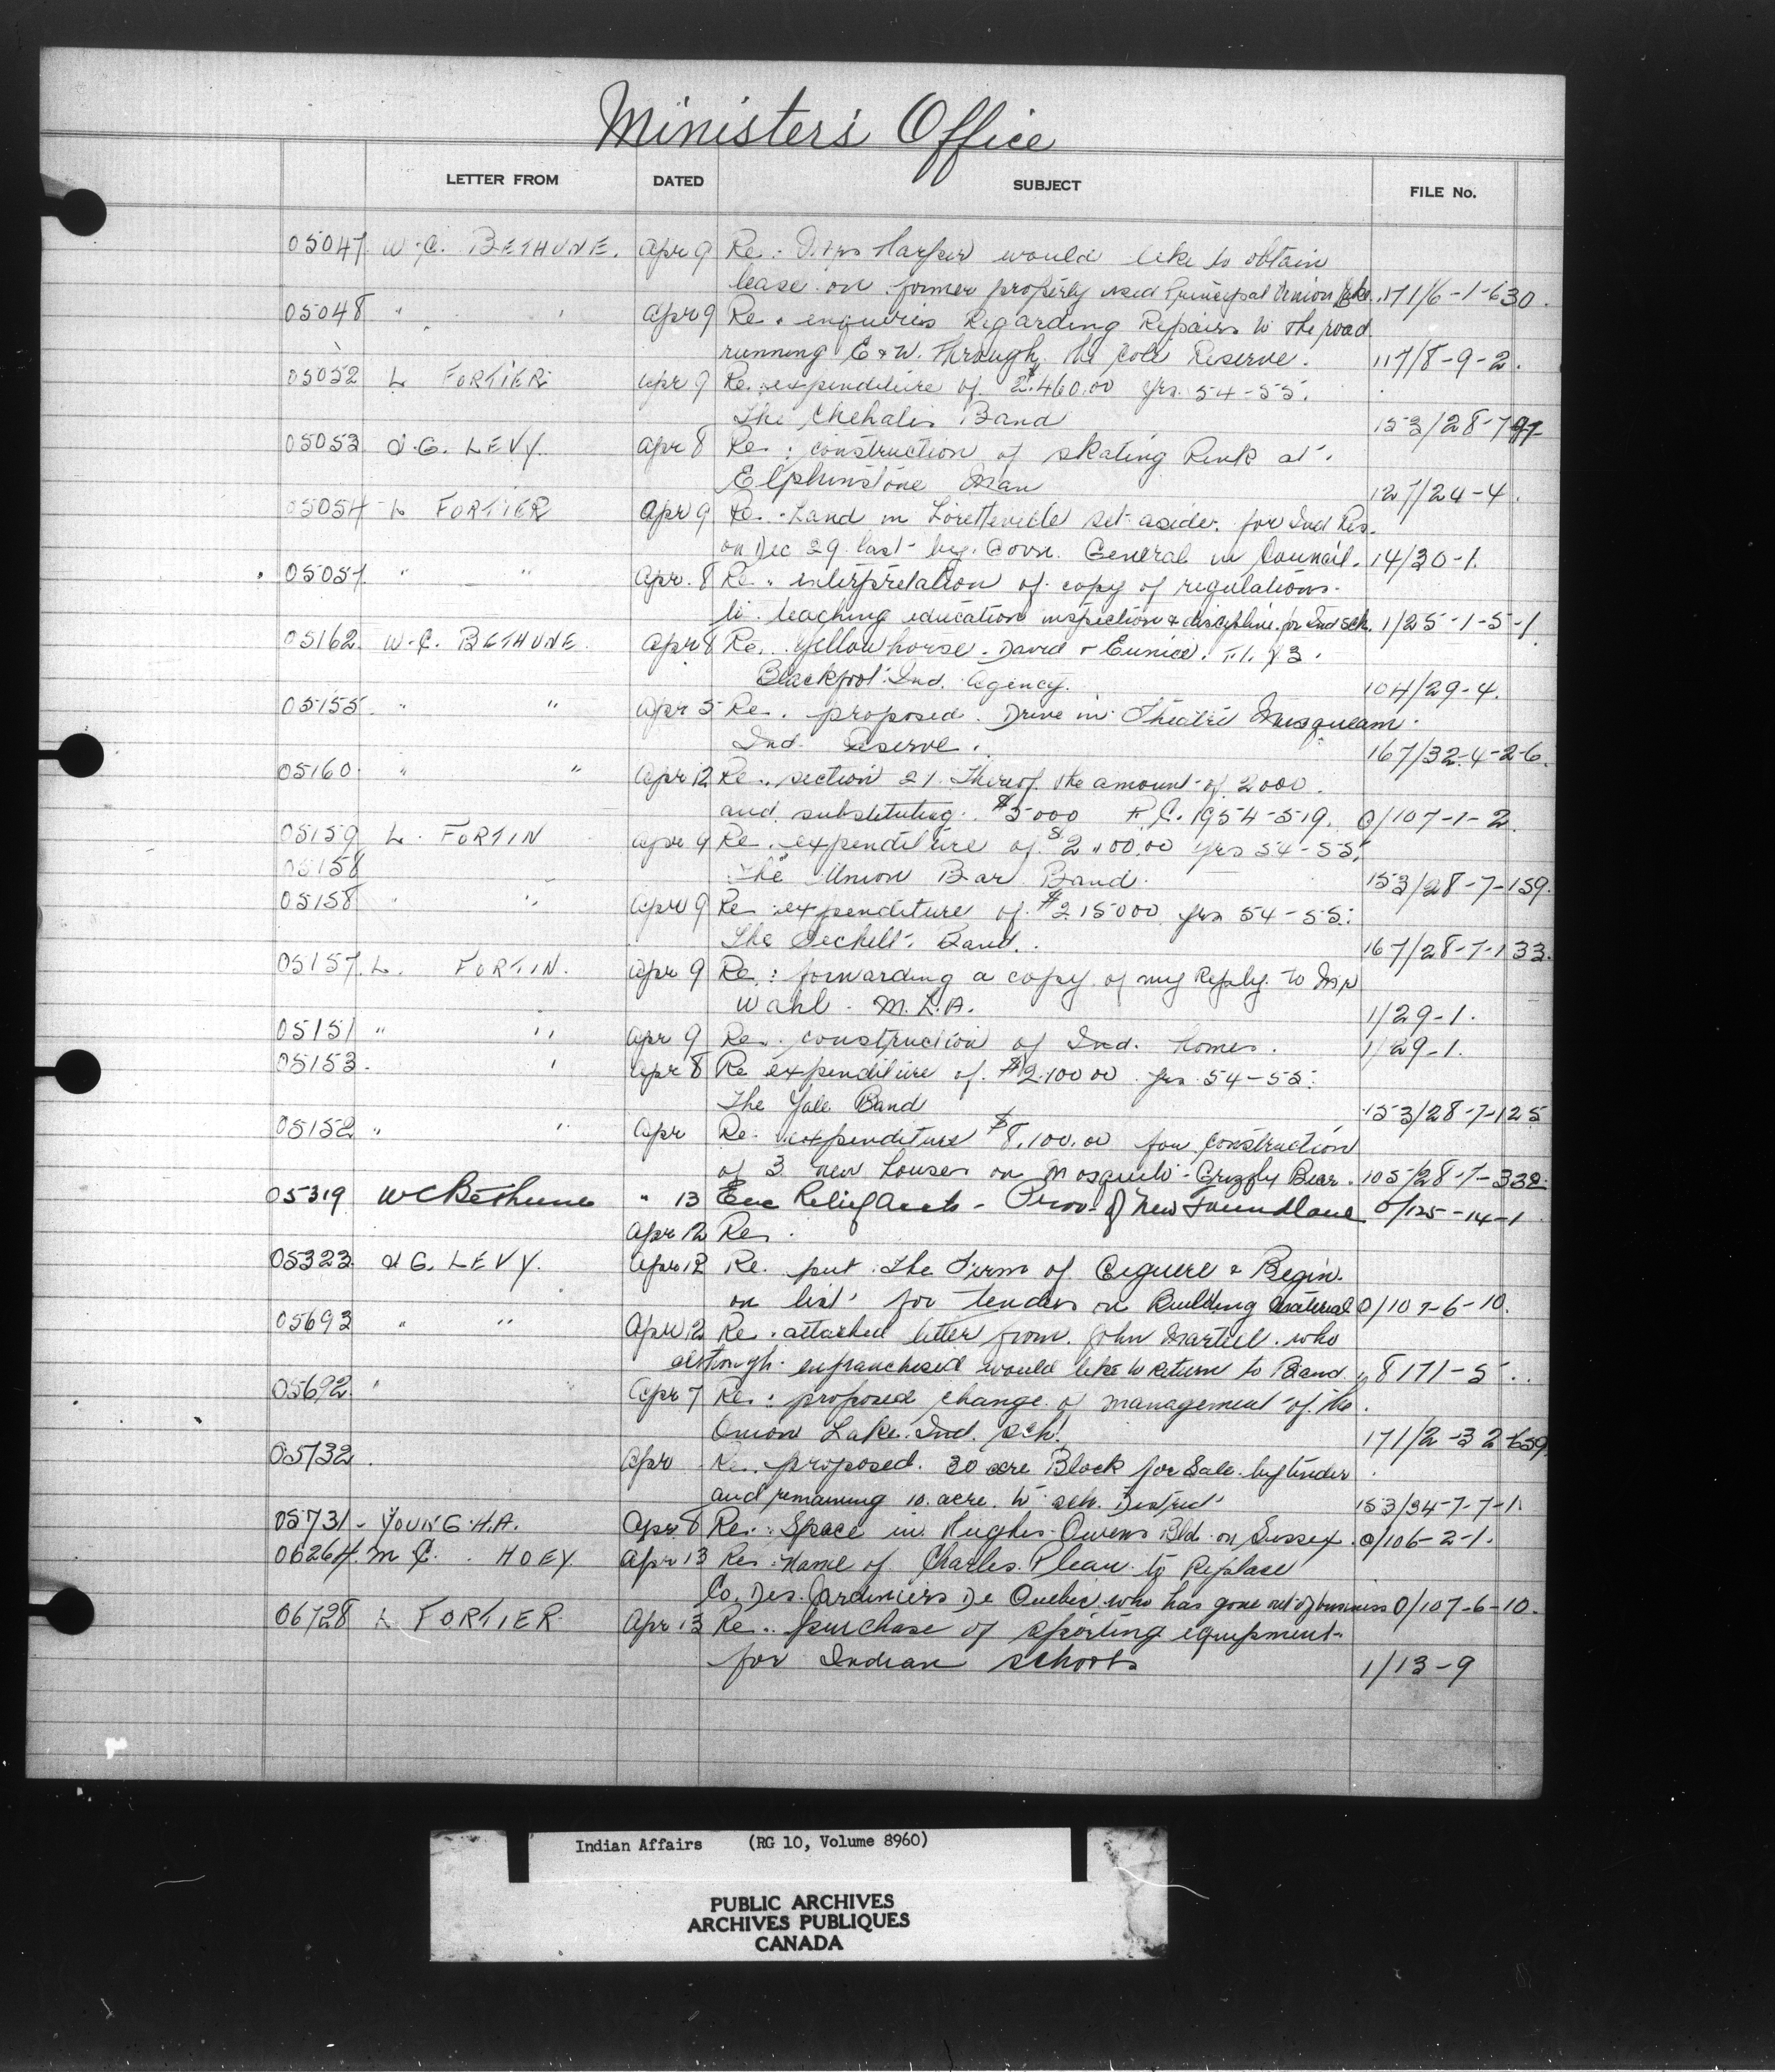 Minister's Office
LETTER FROM DATED SUBJECT FILE No.
05047 W.C. BETHUNE. Apr 9 Re: Mrs Harper would like to obtain
lease on former property used Principal 171/6-1-630.
05048 " " Apr 9 Re. enquiries Regarding Repairs to the road
running E & W. Through the Cote Reserve. 117/8-9-2.
05052 L FORTIER Apr 9 Re. expenditure of $2.460.00 yrs. 54-55.
The Chehalis Band 153/28-7-
05053 G. LEVY. Apr 8 Re: construction of skating Rink at
Elphinstone Man 127/24-4.
05054 L FORTIER Apr 9 Re. Land in Loretteville set aside for Ind Res.
on Dec 29 last by Gov. General in Council. 14/30-1.
05057 " " Apr. 8 Re. interpretation of copy of regulations.
to teaching education inspection & discipline for Ind sch. 1/25-1-5-1
05162 W.C. BETHUNE Apr 8 Re. Yellow horse. David & Eunice.
Blackfoot Ind. Agency. 104/29-4.
05155 " " Apr 5 Re. proposed Drive in Theatre Musqueam
Ind. Reserve. 167/32-4-2-6.
05160 " " Apr 12 Re. section 21. Thereof the amount of 2000.
and substituting $5000 P.C. 1954-519. 0/107-1-2
05159 L. FORTIN Apr 9 Re. expenditure of $2 00.00 yrs 54-55.
05158 The Union Bar Band. 153/28-7-159.
05158 " " Apr 9 Re expenditure of $2150 00 yrs 54-55.
The Sechelt Band. 167/28-7-133.
05157 L. FORTIN. Apr 9 Re: forwarding a copy of my Reply to Mr
Wahl. M.L.A. 1/29-1.
05151 " " Apr 9 Re. construction of Ind. homes. 1/29-1.
05153. " Apr 8 Re expenditure of $2.100 00 yrs. 54-55.
The Yale Band 153/28-7-125
05152 " " Apr Re. expenditure $8,100.00 for construction
of 3 new houses on Mosquito-Grizzly Bear. 105/28-7-332
05319 WC Bethune " 13 Re Relief accts - Prov. of New Foundland 0/125-14-1
Apr 12 Re.
05323 G. LEVY. Apr 12 Re. put the Firm of & Begin
on list for tenders on Building Material 0/107-6-10.
05693 " " Apr 12 Re. attached letter from John Martell who
although enfranchised would like to return to Band 8171-5
05692 " Apr 7 Re: proposed change of management of the
Onion Lake Ind. sch. 171/2-32-659
05732 Apr Re. proposed. 30 acre Block for Sale by tender
and remaining 10 acre to sch. District 153/34-7-7-1.
05731 - YOUNG H.A. Apr 8 Re: Space in Hughes-Owens Bld on Sussex. 0/106-2-1.
06264 M C. HOEY Apr 13 Re: Name of Charles Pleau to Replace
Co. Des Jardiniers De Quebec who has gone out of business 0/107-6-10.
06728 L FORTIER Apr 13 Re. purchase of sporting equipment
for Indian schools 1/13-9
Indian Affairs (RG 10, Volume 8960)
PUBLIC ARCHIVES
ARCHIVES PUBLIQUES
CANADA